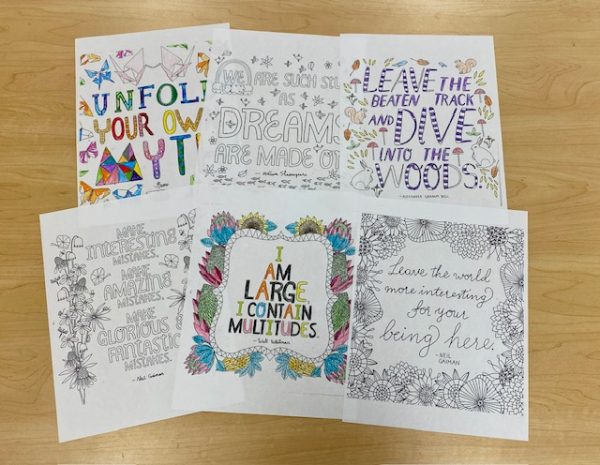 UNFOLD
YOUR OWN
MYTH
Rumi
WE ARE SUCH STUFF
AS
DREAMS
ARE MADE OF
William Shakespeare
LEAVE THE
BEATEN TRACK
AND DIVE
INTO THE
WOODS.
-ALEXANDER GRAHAM BELL
MAKE
INTERESTING
MISTAKES.
MAKE
AMAZING
MISTAKES.
MAKE
GLORIOUS
FANTASTIC
MISTAKES.
- Neil Gaiman
I
AM
LARGE,
I CONTAIN
MULTITUDES.
- Walt Whitman
Leave the world
more interesting
for your
being here.
-NEIL
GAIMAN